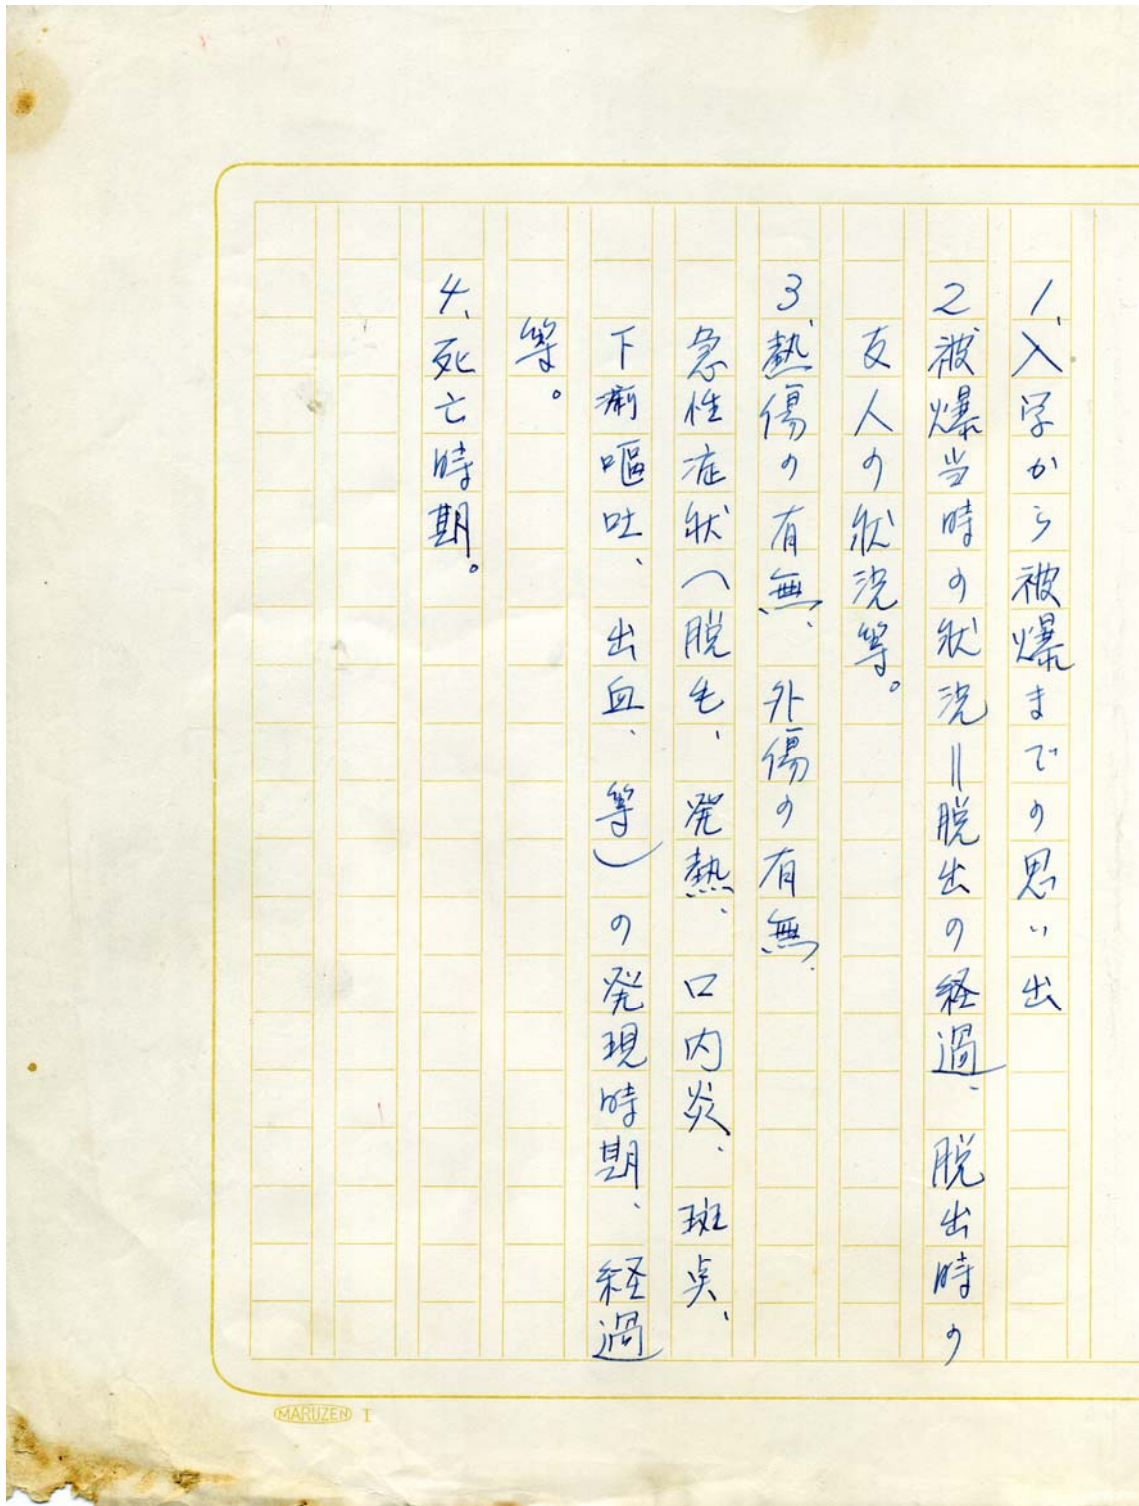 1、入学から被爆までの思い出
2被爆当時の状況＝脱出の経過、脱出時の
友人の状況等。
3、熱傷の有無、外傷の有無、
急性症状（脱毛、発熱、口内炎、斑点、
下痢嘔吐、出血、等）の発現時期、経過
等。
4、死亡時期。
MARUZEN I